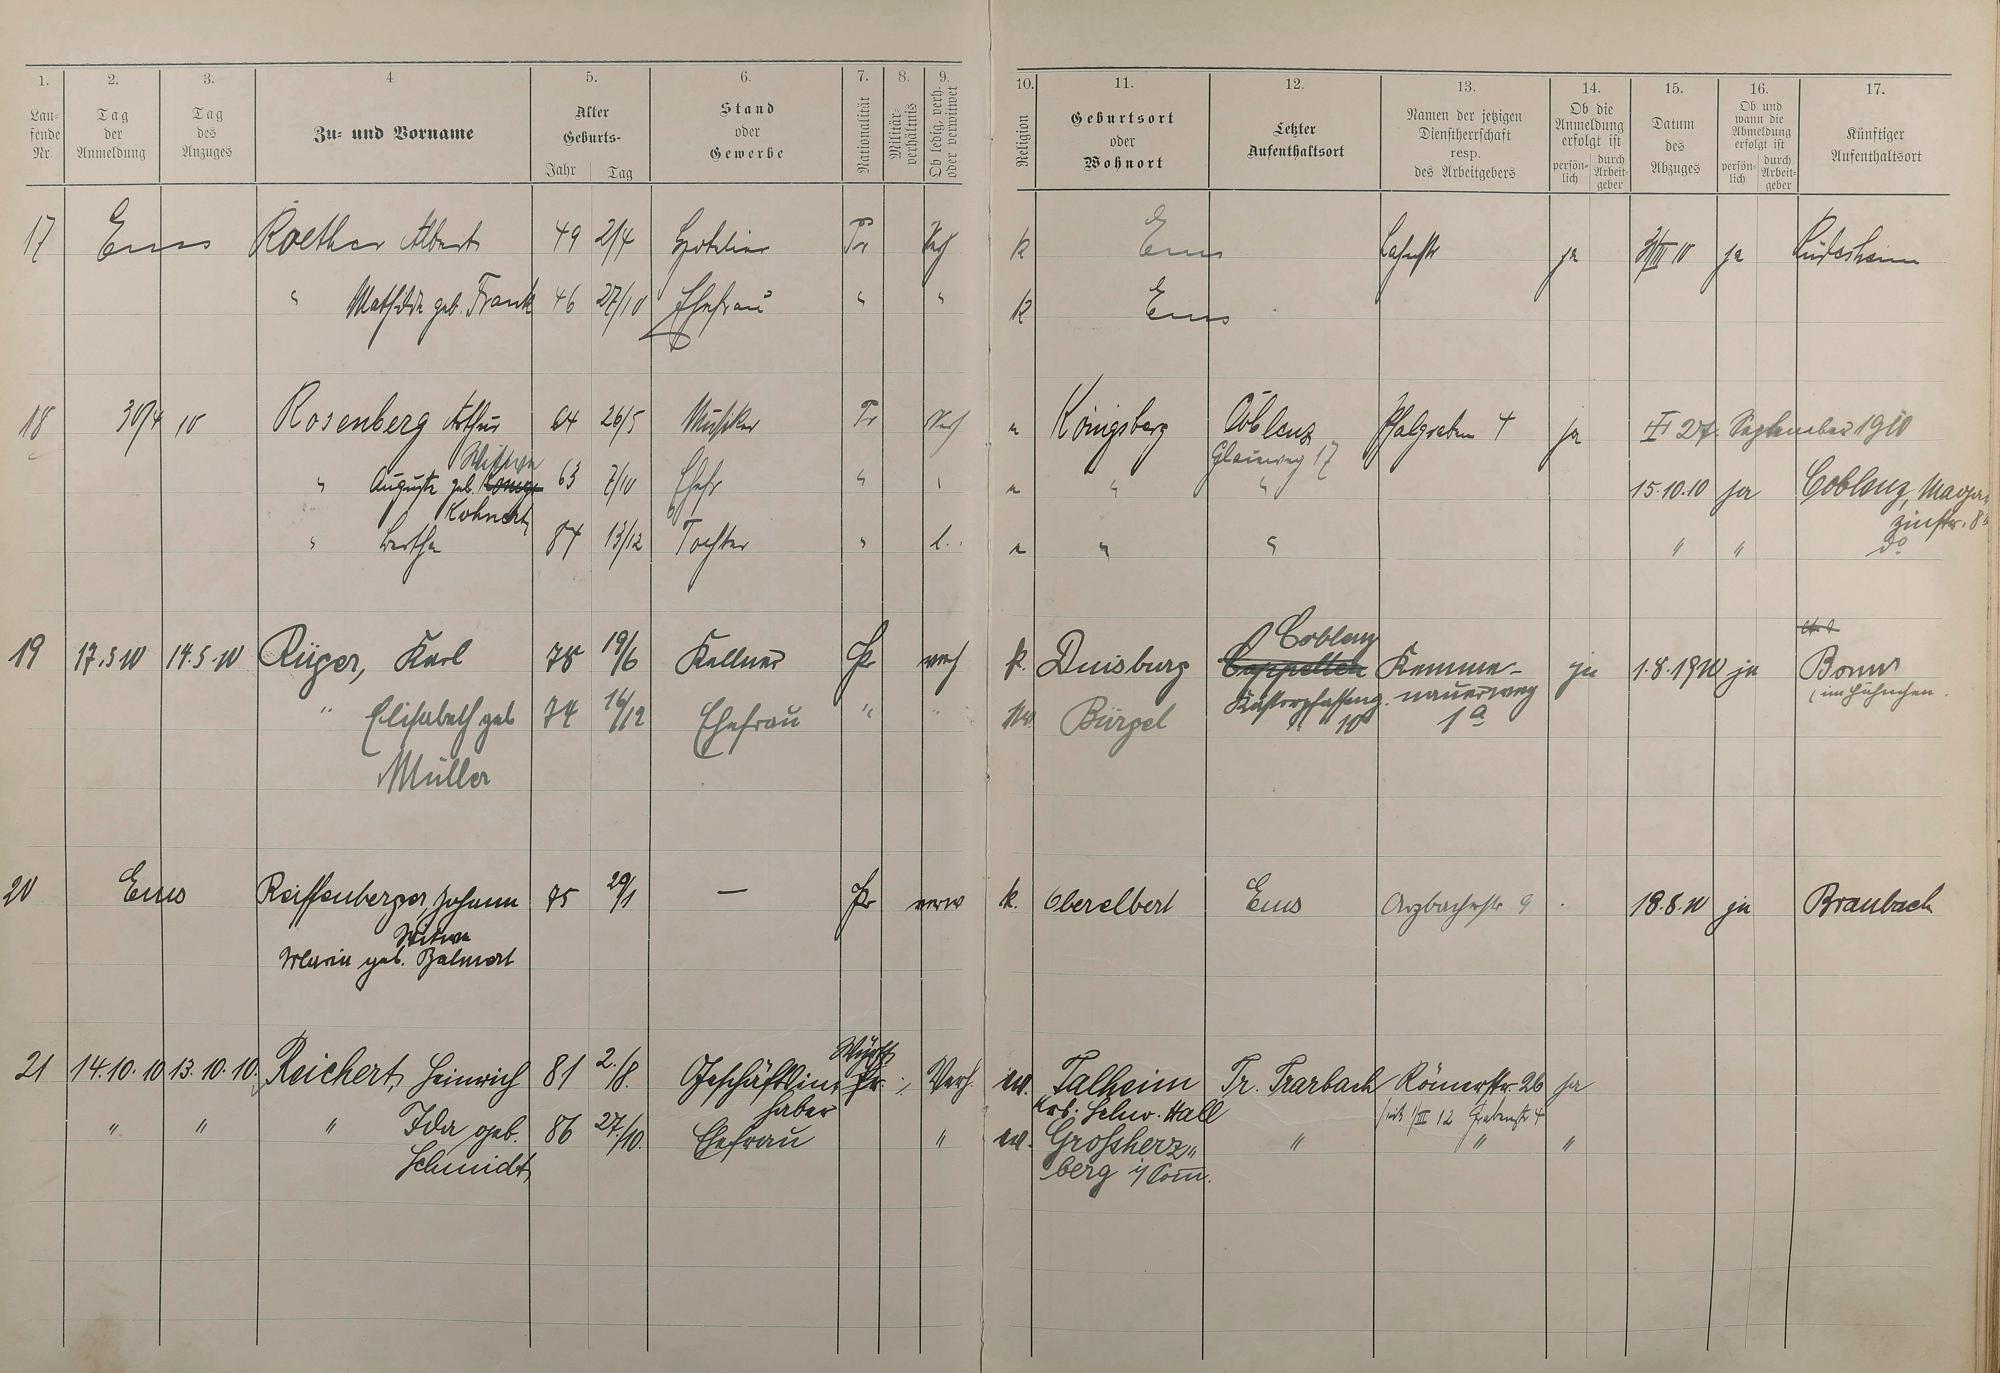 1. 2. 3. 4 5. 6. 7. 8. 9. 10. 11. 12. 13. 14. 15. 16. 17.
Lau-
fende
Nr.
Tag
der
Anmeldung
Tag
des
Anzuges
Zu- und Vorname
Alter
Geburts-
Jahr Tag
Stand
oder
Gewerbe
Nationalität
Militär-
verhältnis
Ob ledig, verh.
oder verwitwet
Religion
Geburtsort
oder
Wohnort
Letzter
Aufenthaltsort
Namen der jetzigen
Dienstherrschaft
resp.
des Arbeitgebers
Ob die
Anmeldung
erfolgt ist
persön-
lich
durch
Arbeit-
geber
Datum
des
Abzuges
Ob und
wann die
Abmeldung
erfolgt ist
persön-
lich
durch
Arbeit-
geber
Künftiger
Aufenthaltsort
17 Ems Roether Albert 49 2/4 Hotelier Pr Verh k Ems Lahnstr ja ja Rüdesheim
" Mathilde geb. Frank 46 27/10 Ehefrau " " k Ems
18 30/4 10 Rosenberg Arthur 64 26/5 Musiker Pr Verh Königsberg Coblenz Pfalgraben 4 ja 27. September 1910
Wittwe 17
" Auguste geb. 63 7/10 Ehefr " " " " 15.10.10 ja Coblenz, Maga
Kohnert zinstr. 8
" Bertha 84 13/12 Tochter " l. " " " " do
19 17.5.10 14.5.10 Rüger, Karl 75 19/6 Kellner Pr verh k. Duisburg Coblenz Kemme- ja 1.8.1910 ja Bonn
Kastorpfaffeng. 10 nauerweg 1a im Hühnchen.
" Elisabeth geb 74 16/12 Ehefrau " " Bürgel
Müller
20 Ems Reiffenberger, Johann 75 29/1 — Pr verw k. Oberelbert Ems Arzbacherstr 9 18.8.10 ja Braubach
Witwe
Maria geb.
21 14.10.10 13.10.10. Reichert, Heinrich 81 2./8. Geschäftsin- Württ Pr. Verh. ev. Talheim Tr. Trarbach Römerstr. 26 ja
haber Schw. Hall 12 Grabenstr 4
" " " Ida geb. 86 27/10. Ehefrau " ev. Grossherz" " " "
Schmidt, berg i/ Pom.